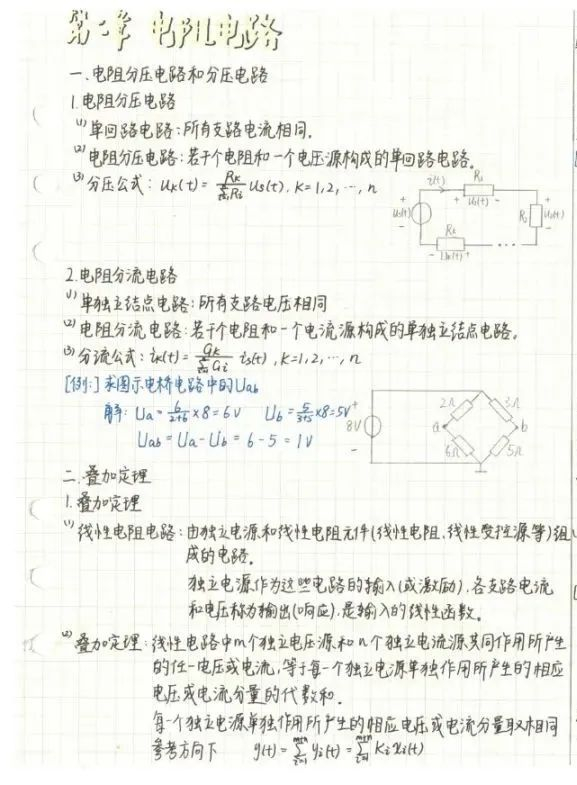 第二章 电阻电路
一、电阻分压电路和分压电路
1.电阻分压电路
(1)单回路电路:所有支路电流相同.
(2)电阻分压电路:若干个电阻和一个电压源构成的单回路电路。
(3)分压公式: Uk(t) = Rk / ∑i=1 Ri Us(t), K=1,2,…,n
i(t) R1
+ U1(t) -
+ Us(t) -
R2 + U2(t) -
Rk
- Uk(t) +
2.电阻分流电路
(1)单独立结点电路:所有支路电压相同
(2)电阻分流电路:若干个电阻和一个电流源构成的单独立结点电路。
(3)分流公式: ik(t) = Gk / ∑i=1 Gi is(t), K=1,2,…,n
[例:]求图示电桥电路中的Uab
解: Ua = 6/2+6 ×8 = 6V Ub = 5/3+5 ×8 = 5V
Uab = Ua - Ub = 6 - 5 = 1V
8V + -
2Ω 3Ω
a b
6Ω 5Ω
二.叠加定理
1.叠加定理
(1)线性电阻电路:由独立电源和线性电阻元件(线性电阻、线性受控源等)组
成的电路.
独立电源作为这些电路的输入(或激励),各支路电流
和电压称为输出(响应).是输入的线性函数。
(2)叠加定理:线性电路中m个独立电压源和n个独立电流源共同作用所产生
的任一电压或电流,等于每一个独立电源单独作用所产生的相应
电压或电流分量的代数和.
每一个独立电源单独作用所产生的相应电压或电流分量取相同
参考方向下 y(t) = ∑i=1 m+n yi(t) = ∑i=1 m+n Ki xi(t)